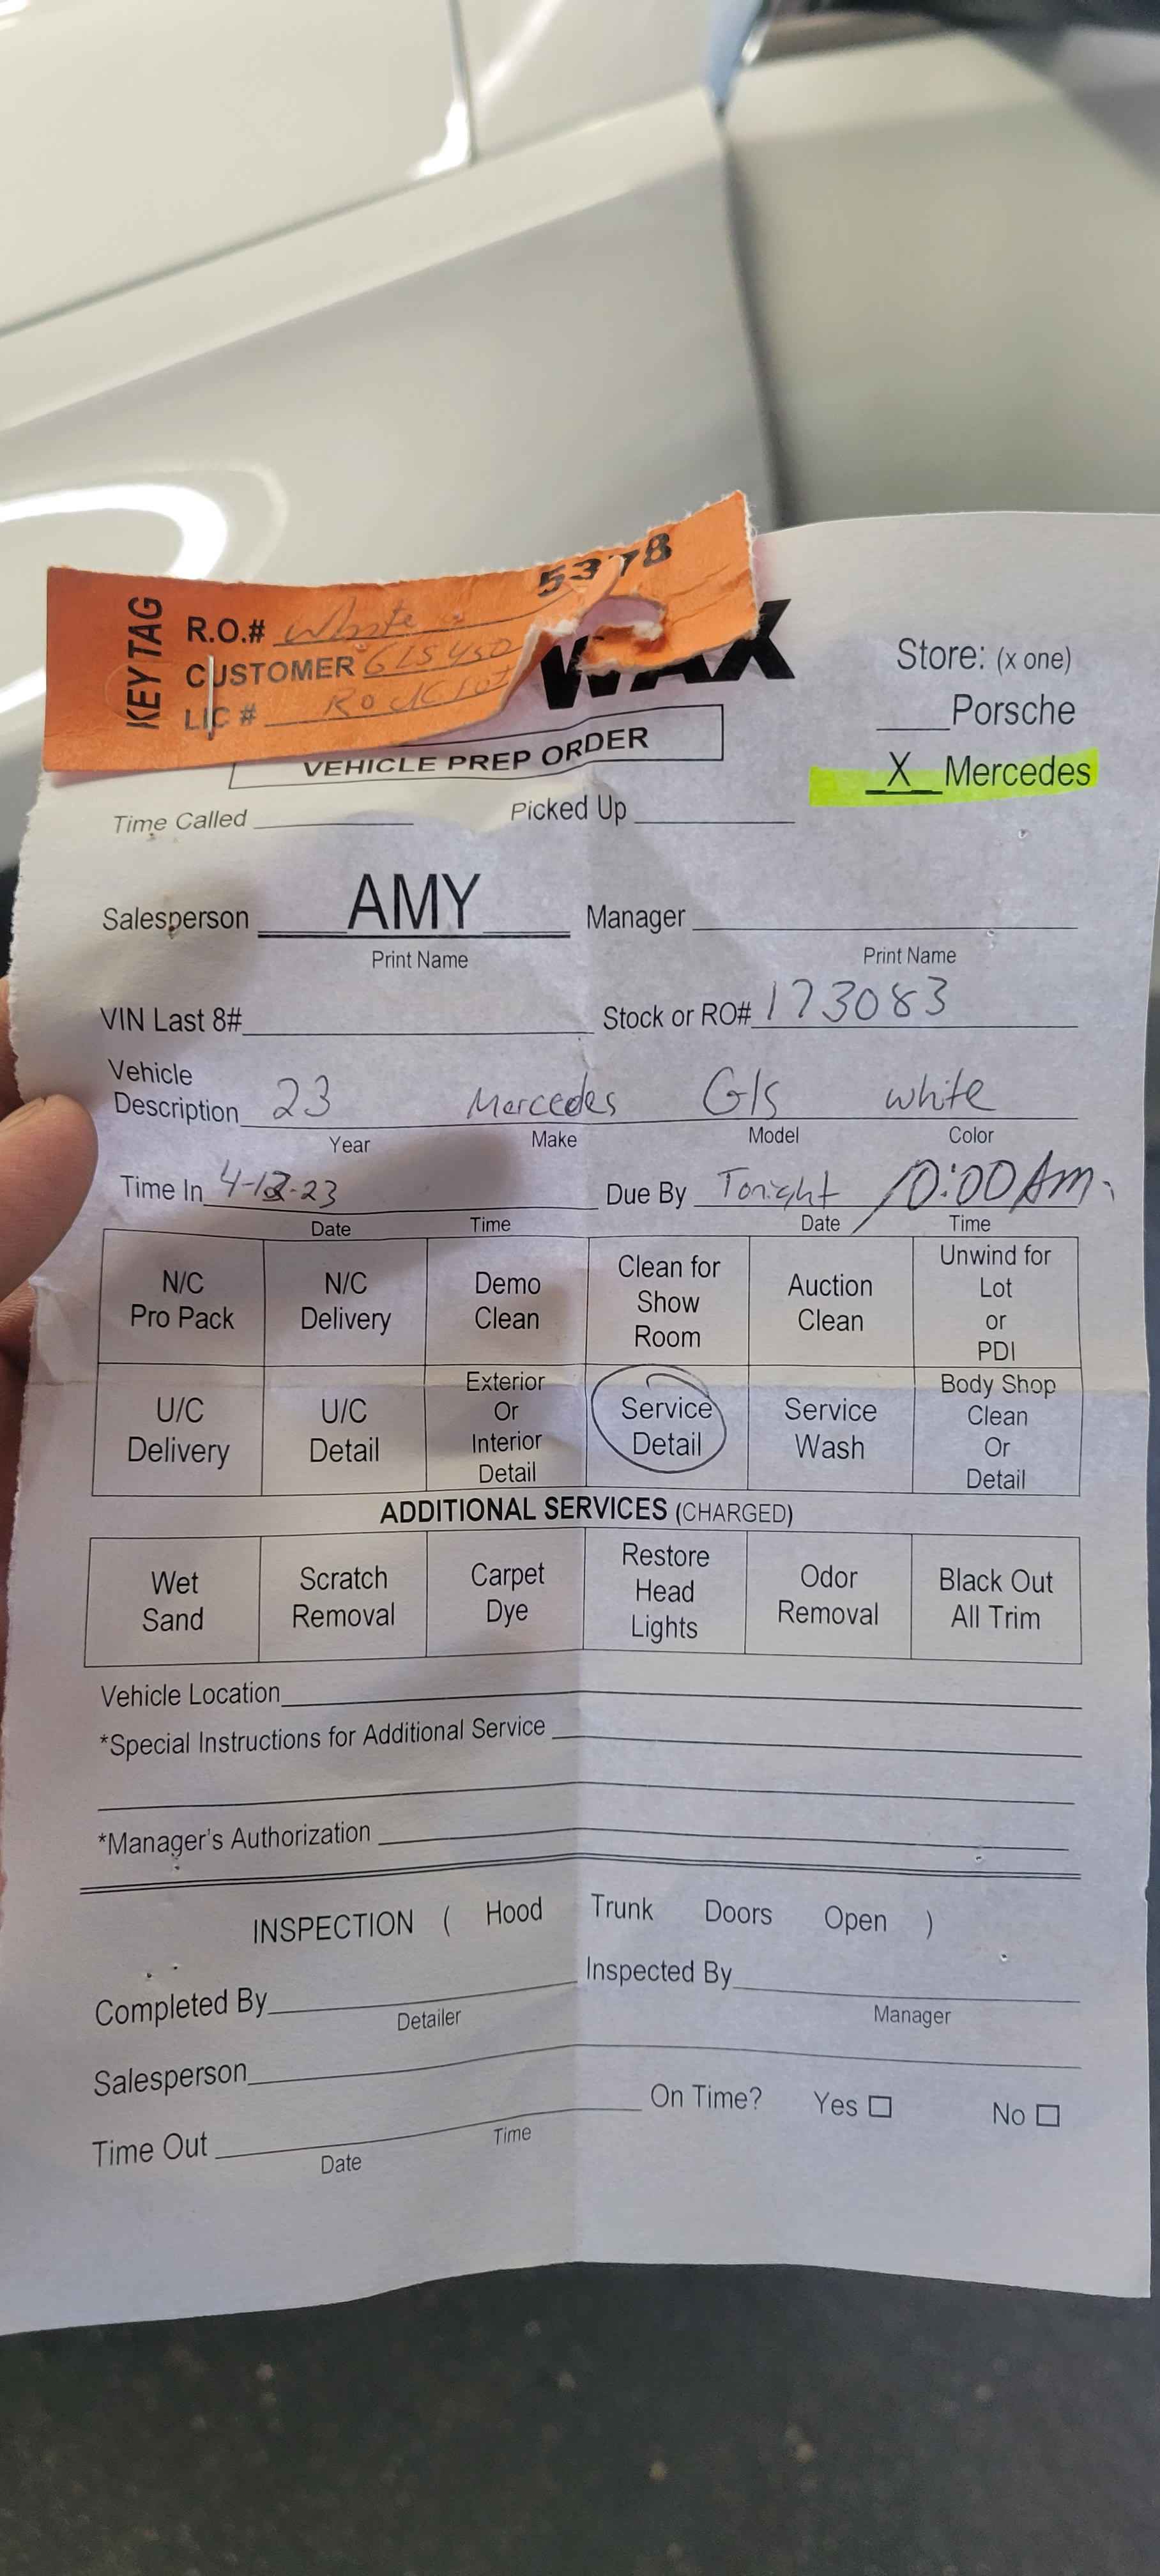 5378
KEY TAG
R.O.# White
CUSTOMER GLS 450
LIC # Rock Lot
WAX
Store: (x one)
Porsche
X Mercedes
VEHICLE PREP ORDER
Time Called Picked Up
Salesperson AMY Manager
Print Name Print Name
VIN Last 8# Stock or RO# 173083
Vehicle
Description 23 Mercedes Gls white
Year Make Model Color
Time In 4-12-23 Due By Tonight 10:00 Am.
Date Time Date Time
N/C Pro Pack N/C Delivery Demo Clean Clean for Show Room Auction Clean Unwind for Lot or PDI
U/C Delivery U/C Detail Exterior Or Interior Detail Service Detail Service Wash Body Shop Clean Or Detail
ADDITIONAL SERVICES (CHARGED)
Wet Sand Scratch Removal Carpet Dye Restore Head Lights Odor Removal Black Out All Trim
Vehicle Location
*Special Instructions for Additional Service
*Manager's Authorization
INSPECTION ( Hood Trunk Doors Open )
Completed By Inspected By
Detailer Manager
Salesperson
On Time? Yes □ No □
Time Out
Date Time